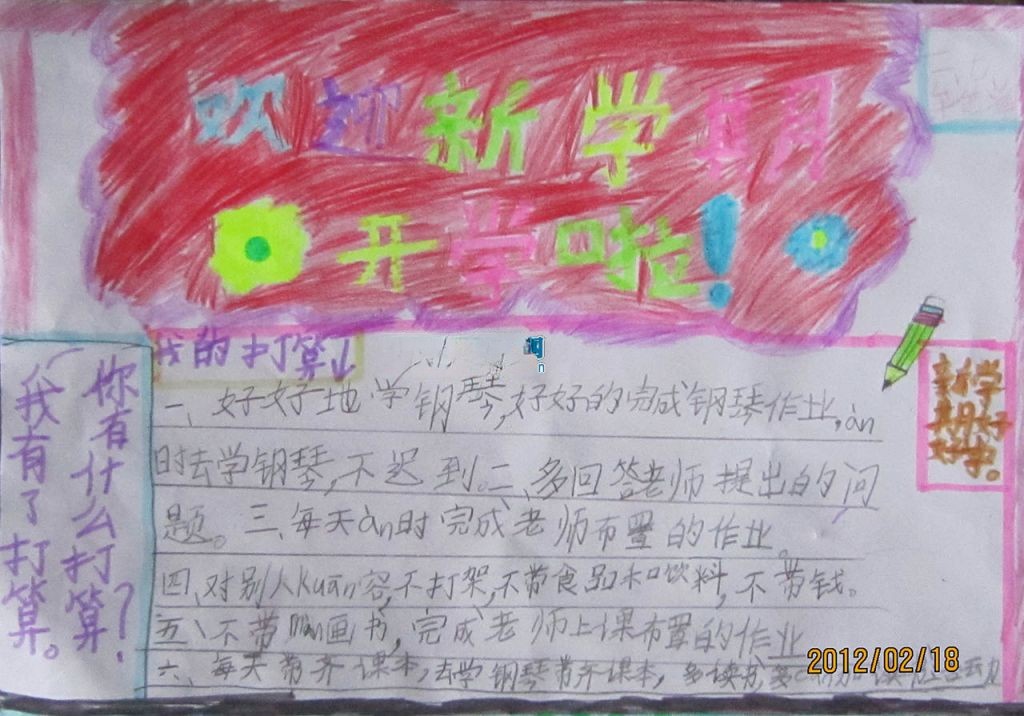 欢迎新学期
开学啦!
我的打算
一、好好地学钢琴,好好的完成钢琴作业,àn
时去学钢琴,不迟到。二、多回答老师提出的问
题。三、每天àn时完成老师布置的作业。
四、对别人kuān容,不打架,不带食品和饮料,不带钱。
五、不带màn画书,完成老师上课布置的作业
六、每天带齐课本,去学钢琴带齐课本,多读书,
你有什么打算?
我有了打算。
新学
期好
好学。
2012/02/18